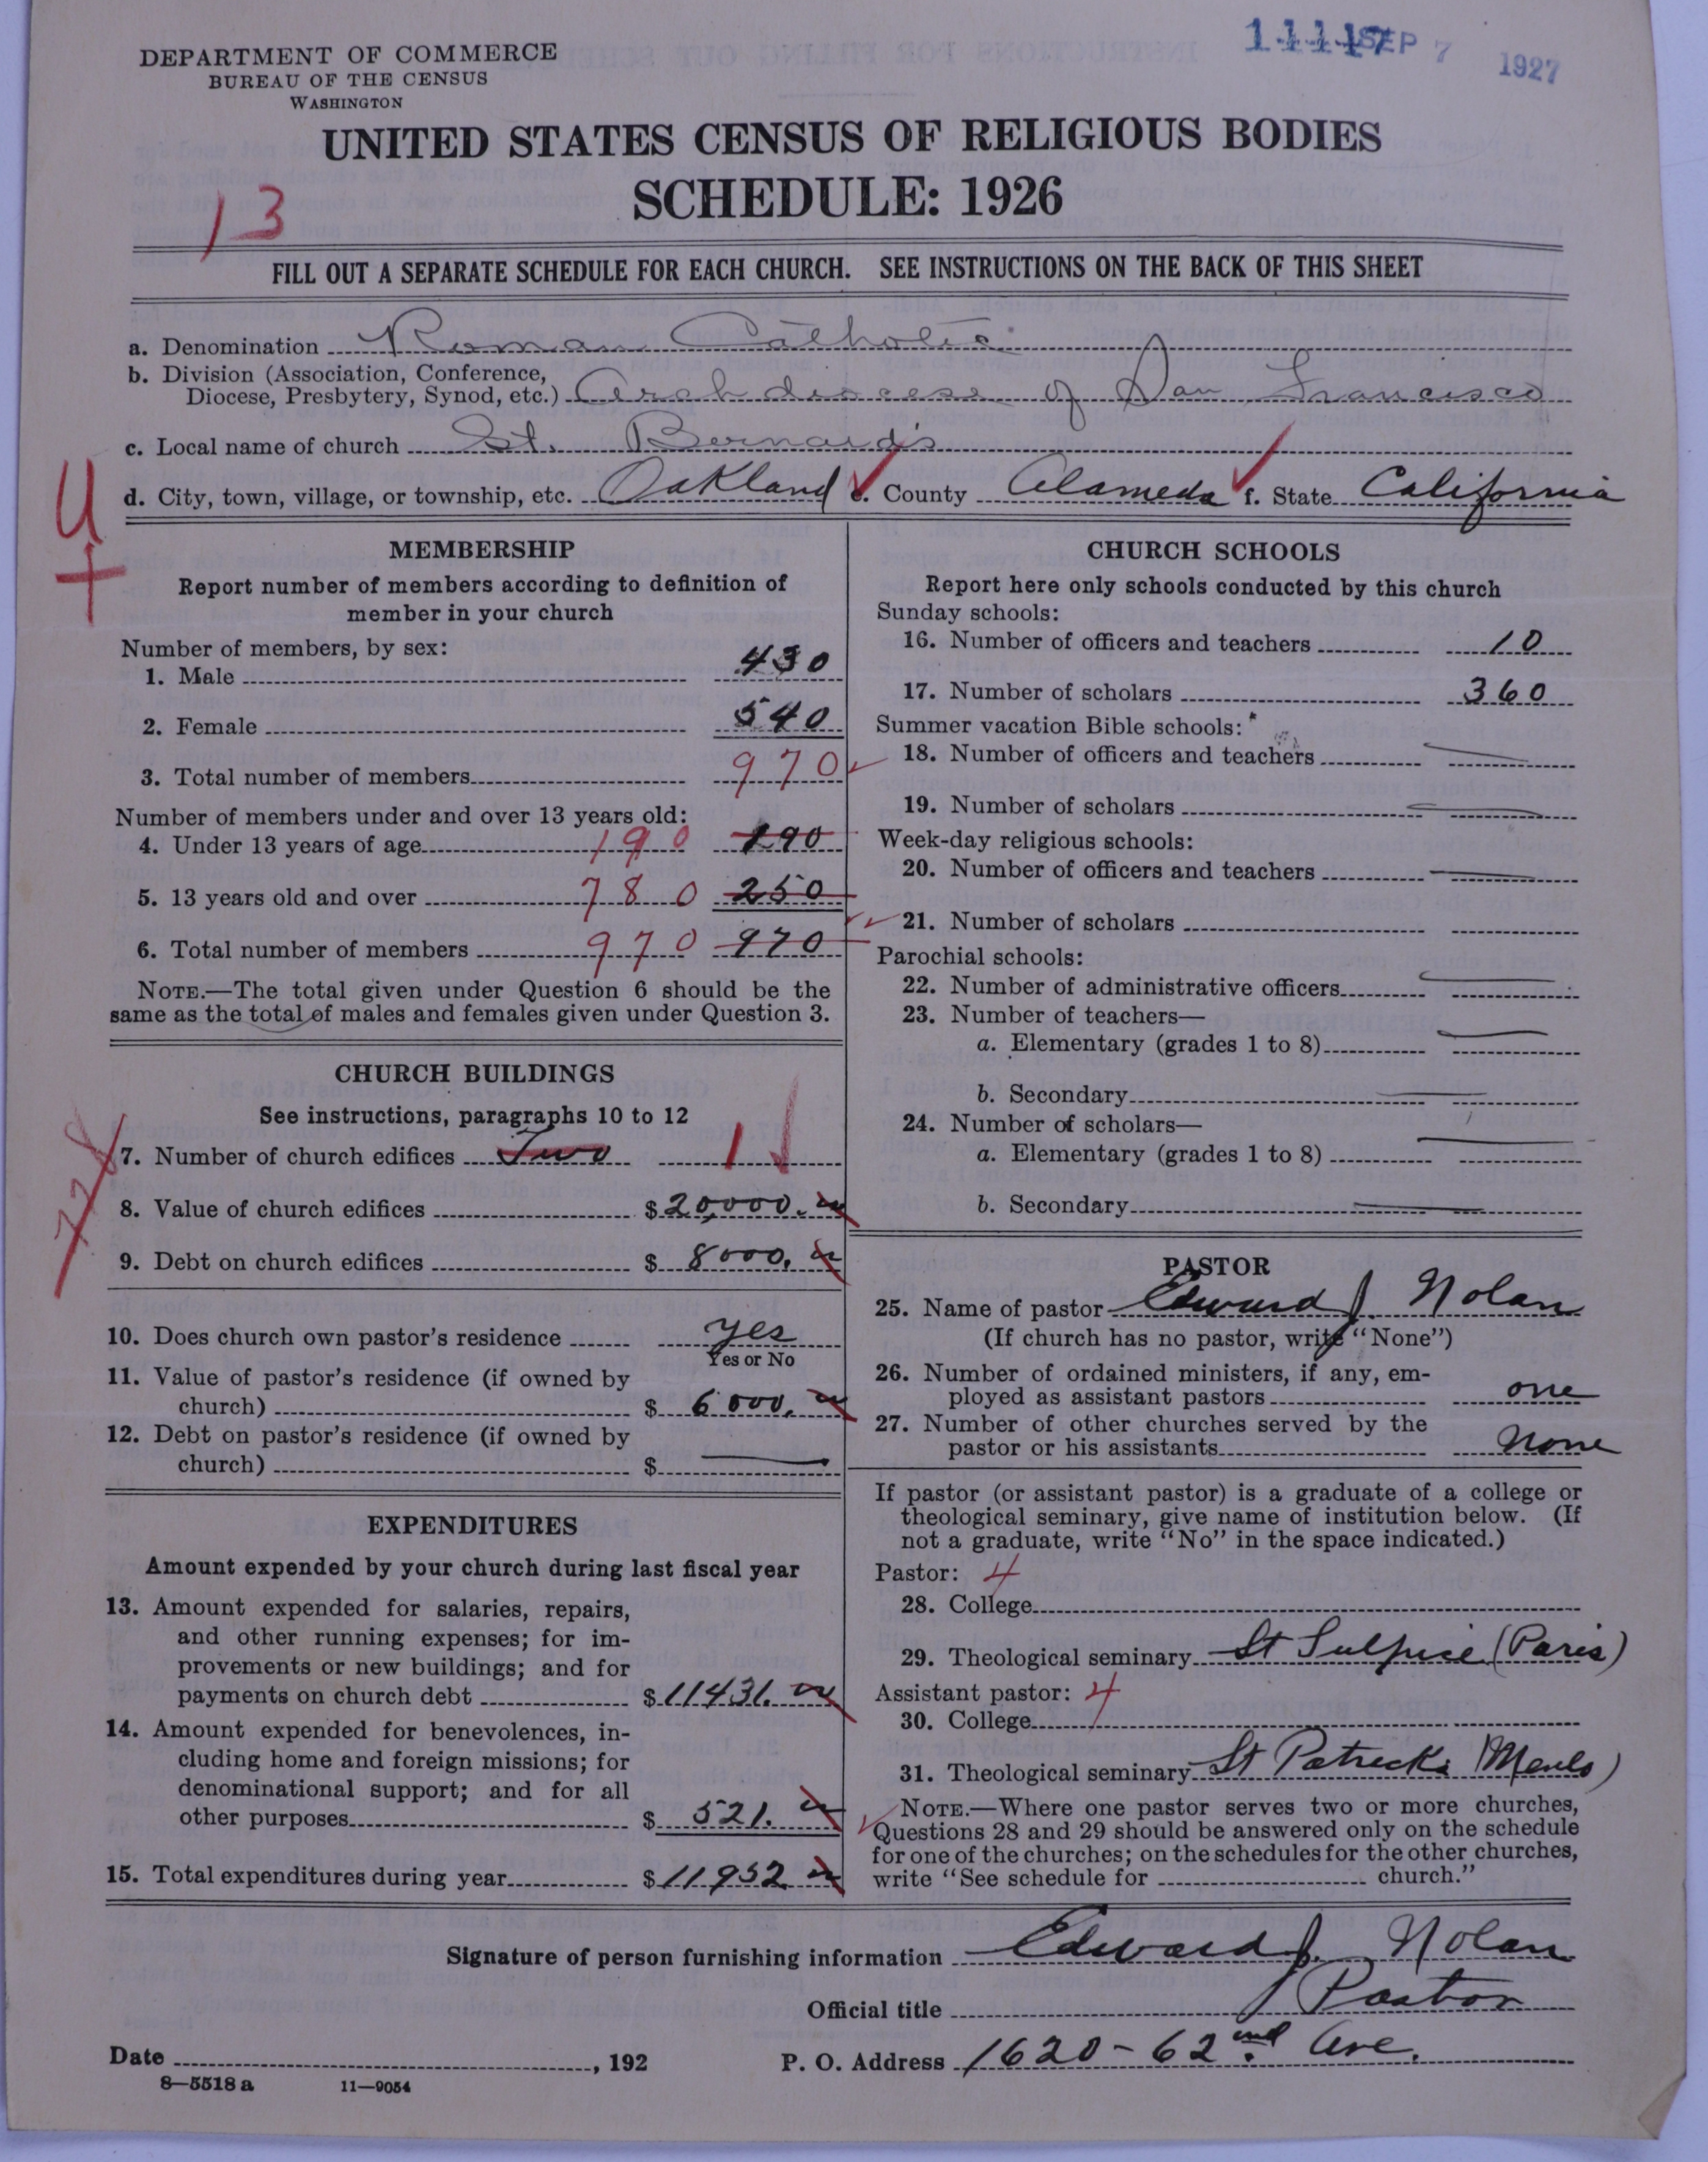 DEPARTMENT OF COMMERCE
BUREAU OF THE CENSUS
WASHINGTON
SEP 7 1927
UNITED STATES CENSUS OF RELIGIOUS BODIES
SCHEDULE: 1926
13
FILL OUT A SEPARATE SCHEDULE FOR EACH CHURCH. SEE INSTRUCTIONS ON THE BACK OF THIS SHEET
a. Denomination Roman Catholic
b. Division (Association, Conference,
Diocese, Presbytery, Synod, etc.) Archdiocese of San Francisco
c. Local name of church St. Bernard's
d. City, town, village, or township, etc. Oakland e. County Alameda f. State California
U
MEMBERSHIP
Report number of members according to definition of
member in your church
Number of members, by sex:
1. Male 430
2. Female 540
3. Total number of members 970
Number of members under and over 13 years old:
4. Under 13 years of age 190 190
5. 13 years old and over 780 250
6. Total number of members 970 970
NOTE.—The total given under Question 6 should be the
same as the total of males and females given under Question 3.
CHURCH BUILDINGS
See instructions, paragraphs 10 to 12
7. Number of church edifices Two 1
8. Value of church edifices $ 20,000.
9. Debt on church edifices $ 8000.
10. Does church own pastor's residence yes
Yes or No
11. Value of pastor's residence (if owned by
church) $ 6000.
12. Debt on pastor's residence (if owned by
church) $
EXPENDITURES
Amount expended by your church during last fiscal year
13. Amount expended for salaries, repairs,
and other running expenses; for im-
provements or new buildings; and for
payments on church debt $ 11431.
14. Amount expended for benevolences, in-
cluding home and foreign missions; for
denominational support; and for all
other purposes $ 521.
15. Total expenditures during year $ 11952
CHURCH SCHOOLS
Report here only schools conducted by this church
Sunday schools:
16. Number of officers and teachers 10
17. Number of scholars 360
Summer vacation Bible schools:
18. Number of officers and teachers
19. Number of scholars
Week-day religious schools:
20. Number of officers and teachers
21. Number of scholars
Parochial schools:
22. Number of administrative officers
23. Number of teachers—
a. Elementary (grades 1 to 8)
b. Secondary
24. Number of scholars—
a. Elementary (grades 1 to 8)
b. Secondary
PASTOR
25. Name of pastor Edward J. Nolan
(If church has no pastor, write "None")
26. Number of ordained ministers, if any, em-
ployed as assistant pastors one
27. Number of other churches served by the
pastor or his assistants None
If pastor (or assistant pastor) is a graduate of a college or
theological seminary, give name of institution below. (If
not a graduate, write "No" in the space indicated.)
Pastor: 4
28. College
29. Theological seminary St Sulpice (Paris)
Assistant pastor: 4
30. College
31. Theological seminary St Patrick's (Menlo)
NOTE.—Where one pastor serves two or more churches,
Questions 28 and 29 should be answered only on the schedule
for one of the churches; on the schedules for the other churches,
write "See schedule for church."
Signature of person furnishing information Edward J. Nolan
Official title Pastor
Date , 192 P. O. Address 1620-62nd Ave.
8—5518 a 11—9054